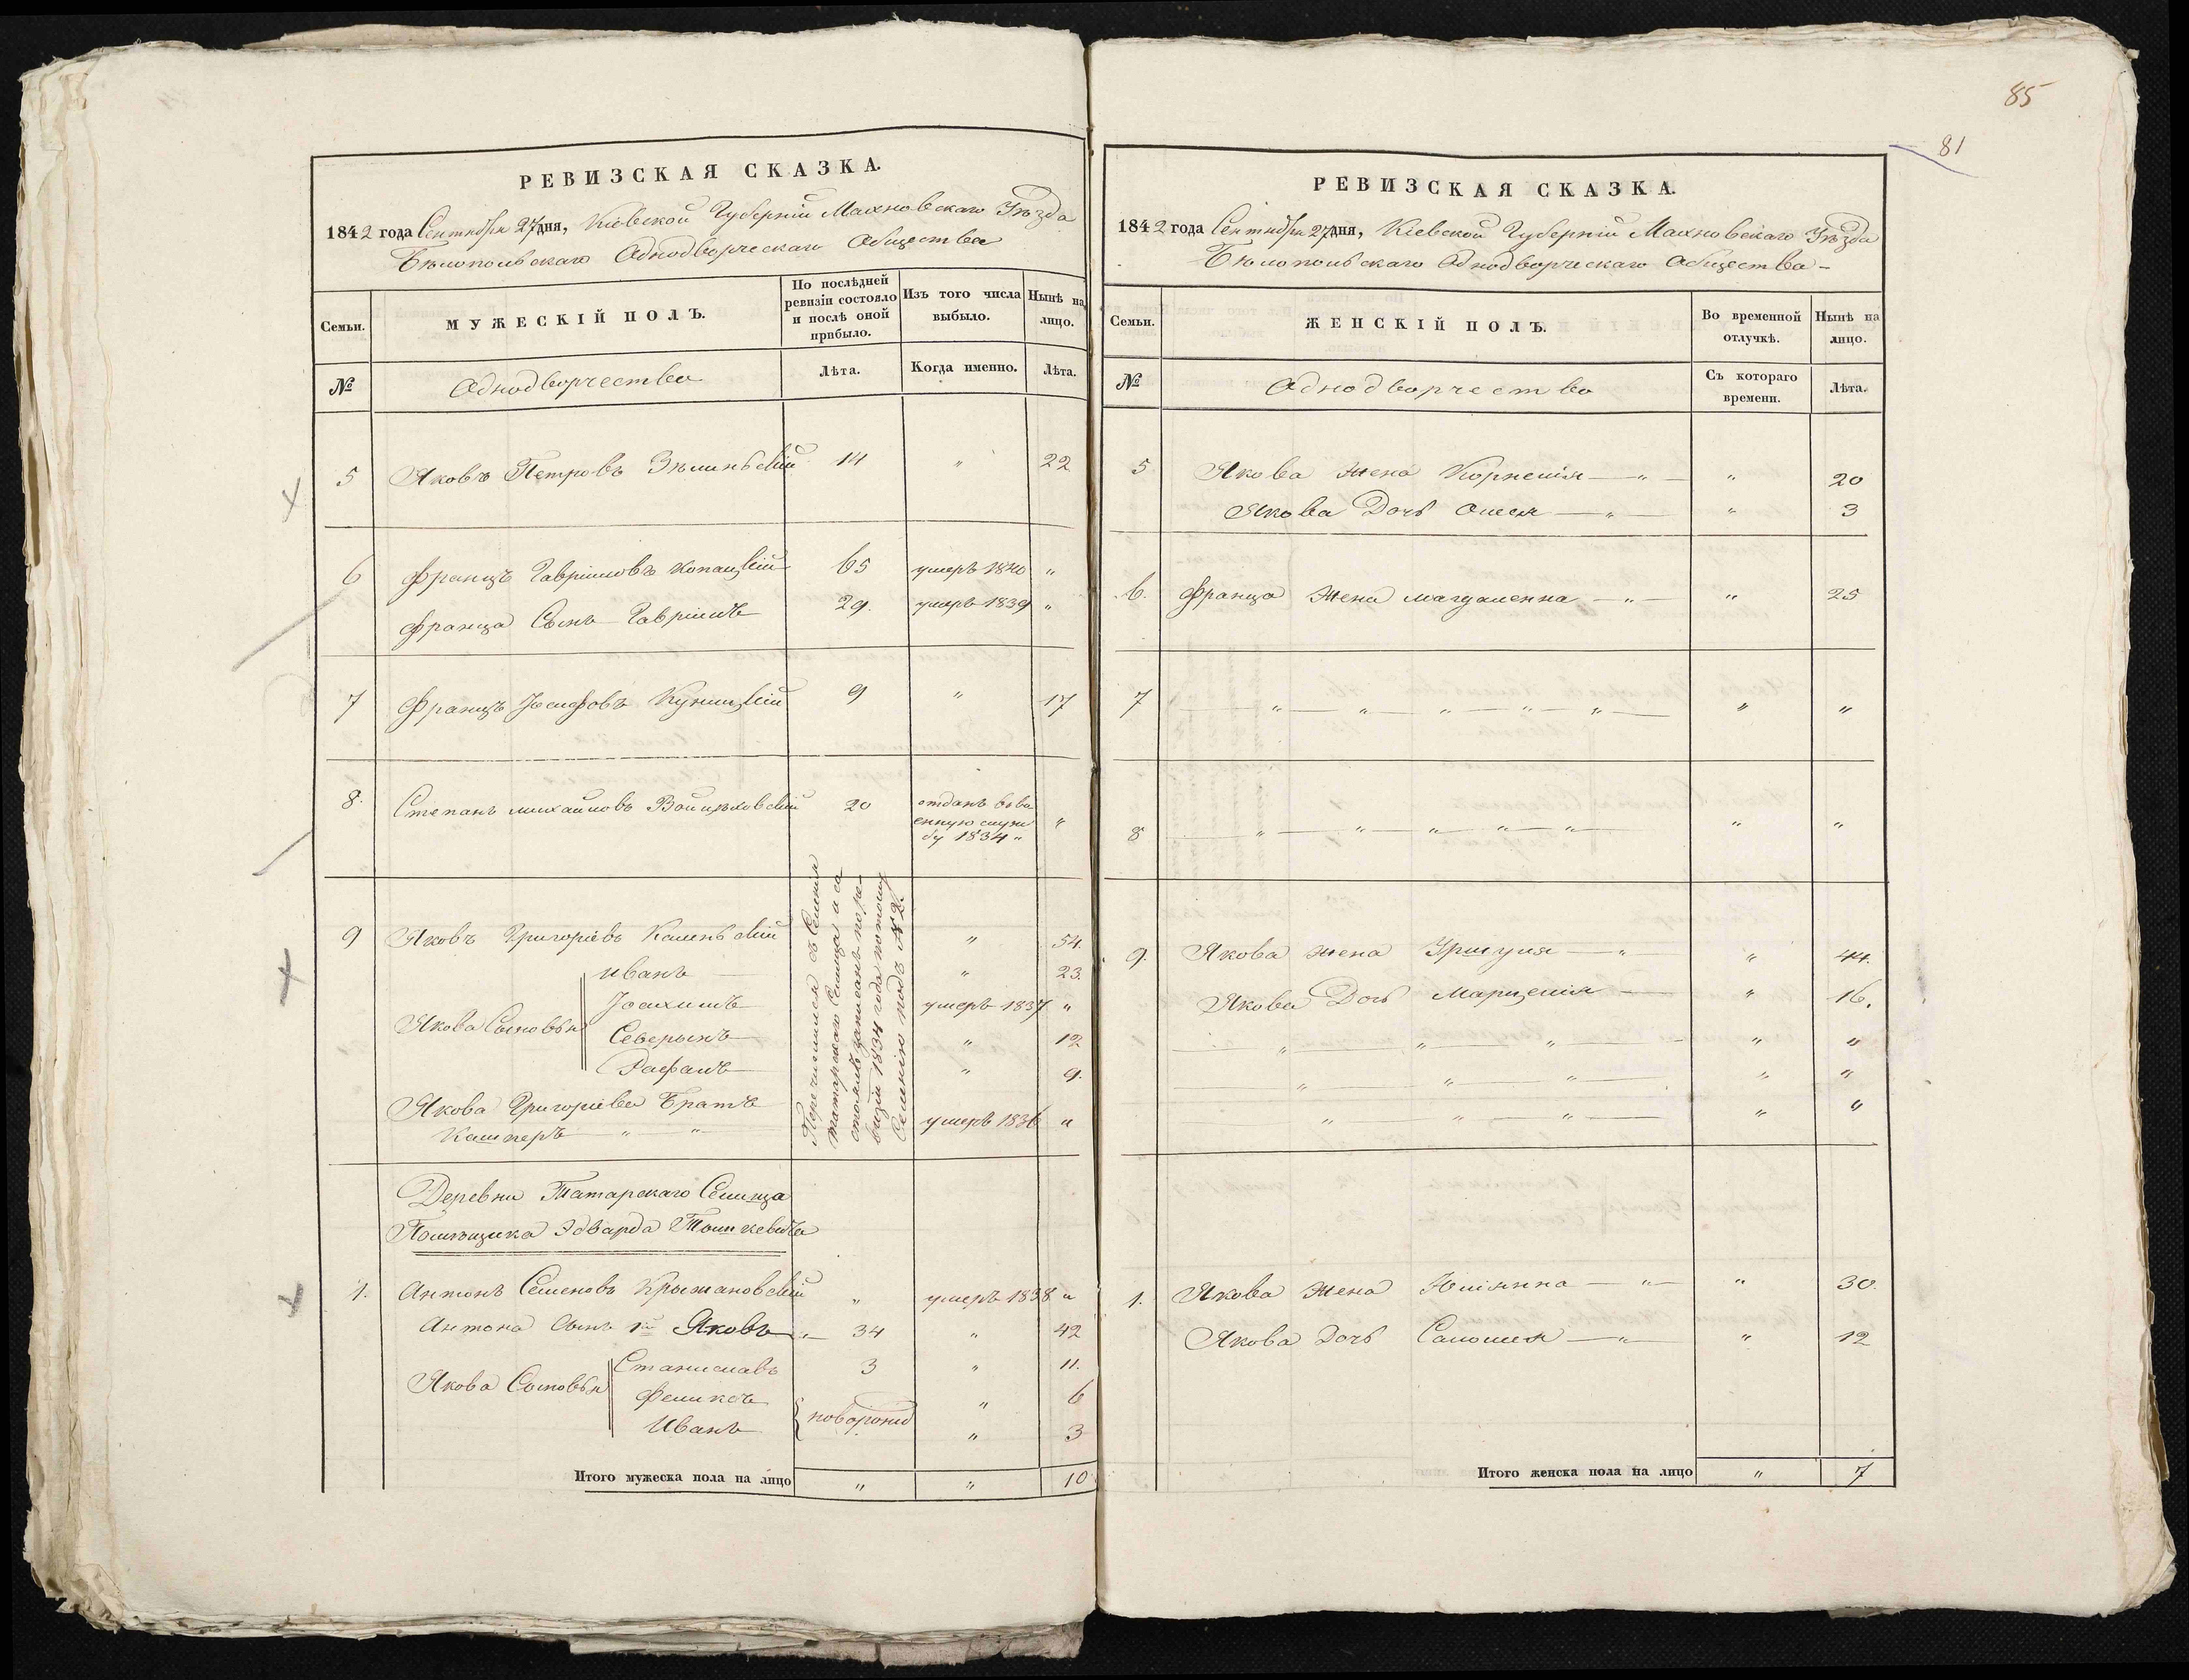 85
81
РЕВИЗСКАЯ СКАЗКА.
1842 года Сентября 27 дня, Кіевской Губерніи Махновскаго Уѣзда
Бѣлопольскаго Однодворческаго Общества
Семьи.
МУЖЕСКІЙ ПОЛЪ.
По послѣдней ревизіи состояло и послѣ оной прибыло.
Изъ того числа выбыло.
Нынѣ на лицо.
№
Однодворчество
Лѣта.
Когда именно.
Лѣта.
5 Яковъ Петровъ Зѣлинскій 14 " 22
6 Францъ Гавріиловъ Копацкій 65 умеръ 1840 "
Франца Сынъ Гавріилъ 29. умеръ 1839 "
7 Францъ Іосифовъ Куницкій 9 " 17
8. Степанъ Михайловъ Войцѣховскій 20 отданъ въ во
енную служ
бу 1834 " "
9 Яковъ Григоріевъ Калинскій " 54.
Иванъ " 23.
Іоахимъ умеръ 1837 "
Якова Сыновья
Северынъ " 12
Рафалъ " 9.
Якова Григоріева Братъ
Кашперъ " " умеръ 1836 "
Перечислился съ Селенія
Татарскаго Селища и со
стоялъ записанъ по ре
визіи 1834 года по тому
Селенію подъ № 2.
Деревни Татарскаго Селища
Помѣщика Эдварда
1. Антонъ Семеновъ Крыжановскій " умеръ 1838 "
Антона Сынъ 1й Яковъ " 34 " 42
Станиславъ 3 " 11.
Якова Сыновья
Феликсъ " 6
Иванъ новорожд " 3
Итого мужеска пола на лицо " " 10
РЕВИЗСКАЯ СКАЗКА.
1842 года Сентября 27 дня, Кіевской Губерніи Махновскаго Уѣзда
Бѣлопольскаго Однодворческаго Общества –
Семьи.
ЖЕНСКІЙ ПОЛЪ.
Во временной отлучкѣ.
Нынѣ на лицо.
№
Однодворчество
Съ котораго времени.
Лѣта.
5 Якова Жена Корнелія — " — " 20
Якова Дочь Олеся — " — " 3
6. Франца Жена Магдаленна — " — " 25
7 " " " " " " "
8 " " " " " " "
9. Якова Жена Уршуля — " " 44.
Якова Дочь Марцелія — " 16.
" " " " "
" " " " "
" " " " "
1. Якова Жена Юліянна — " — " 30.
Якова Дочь Саломея — " — " 12
Итого женска пола на лицо " 7